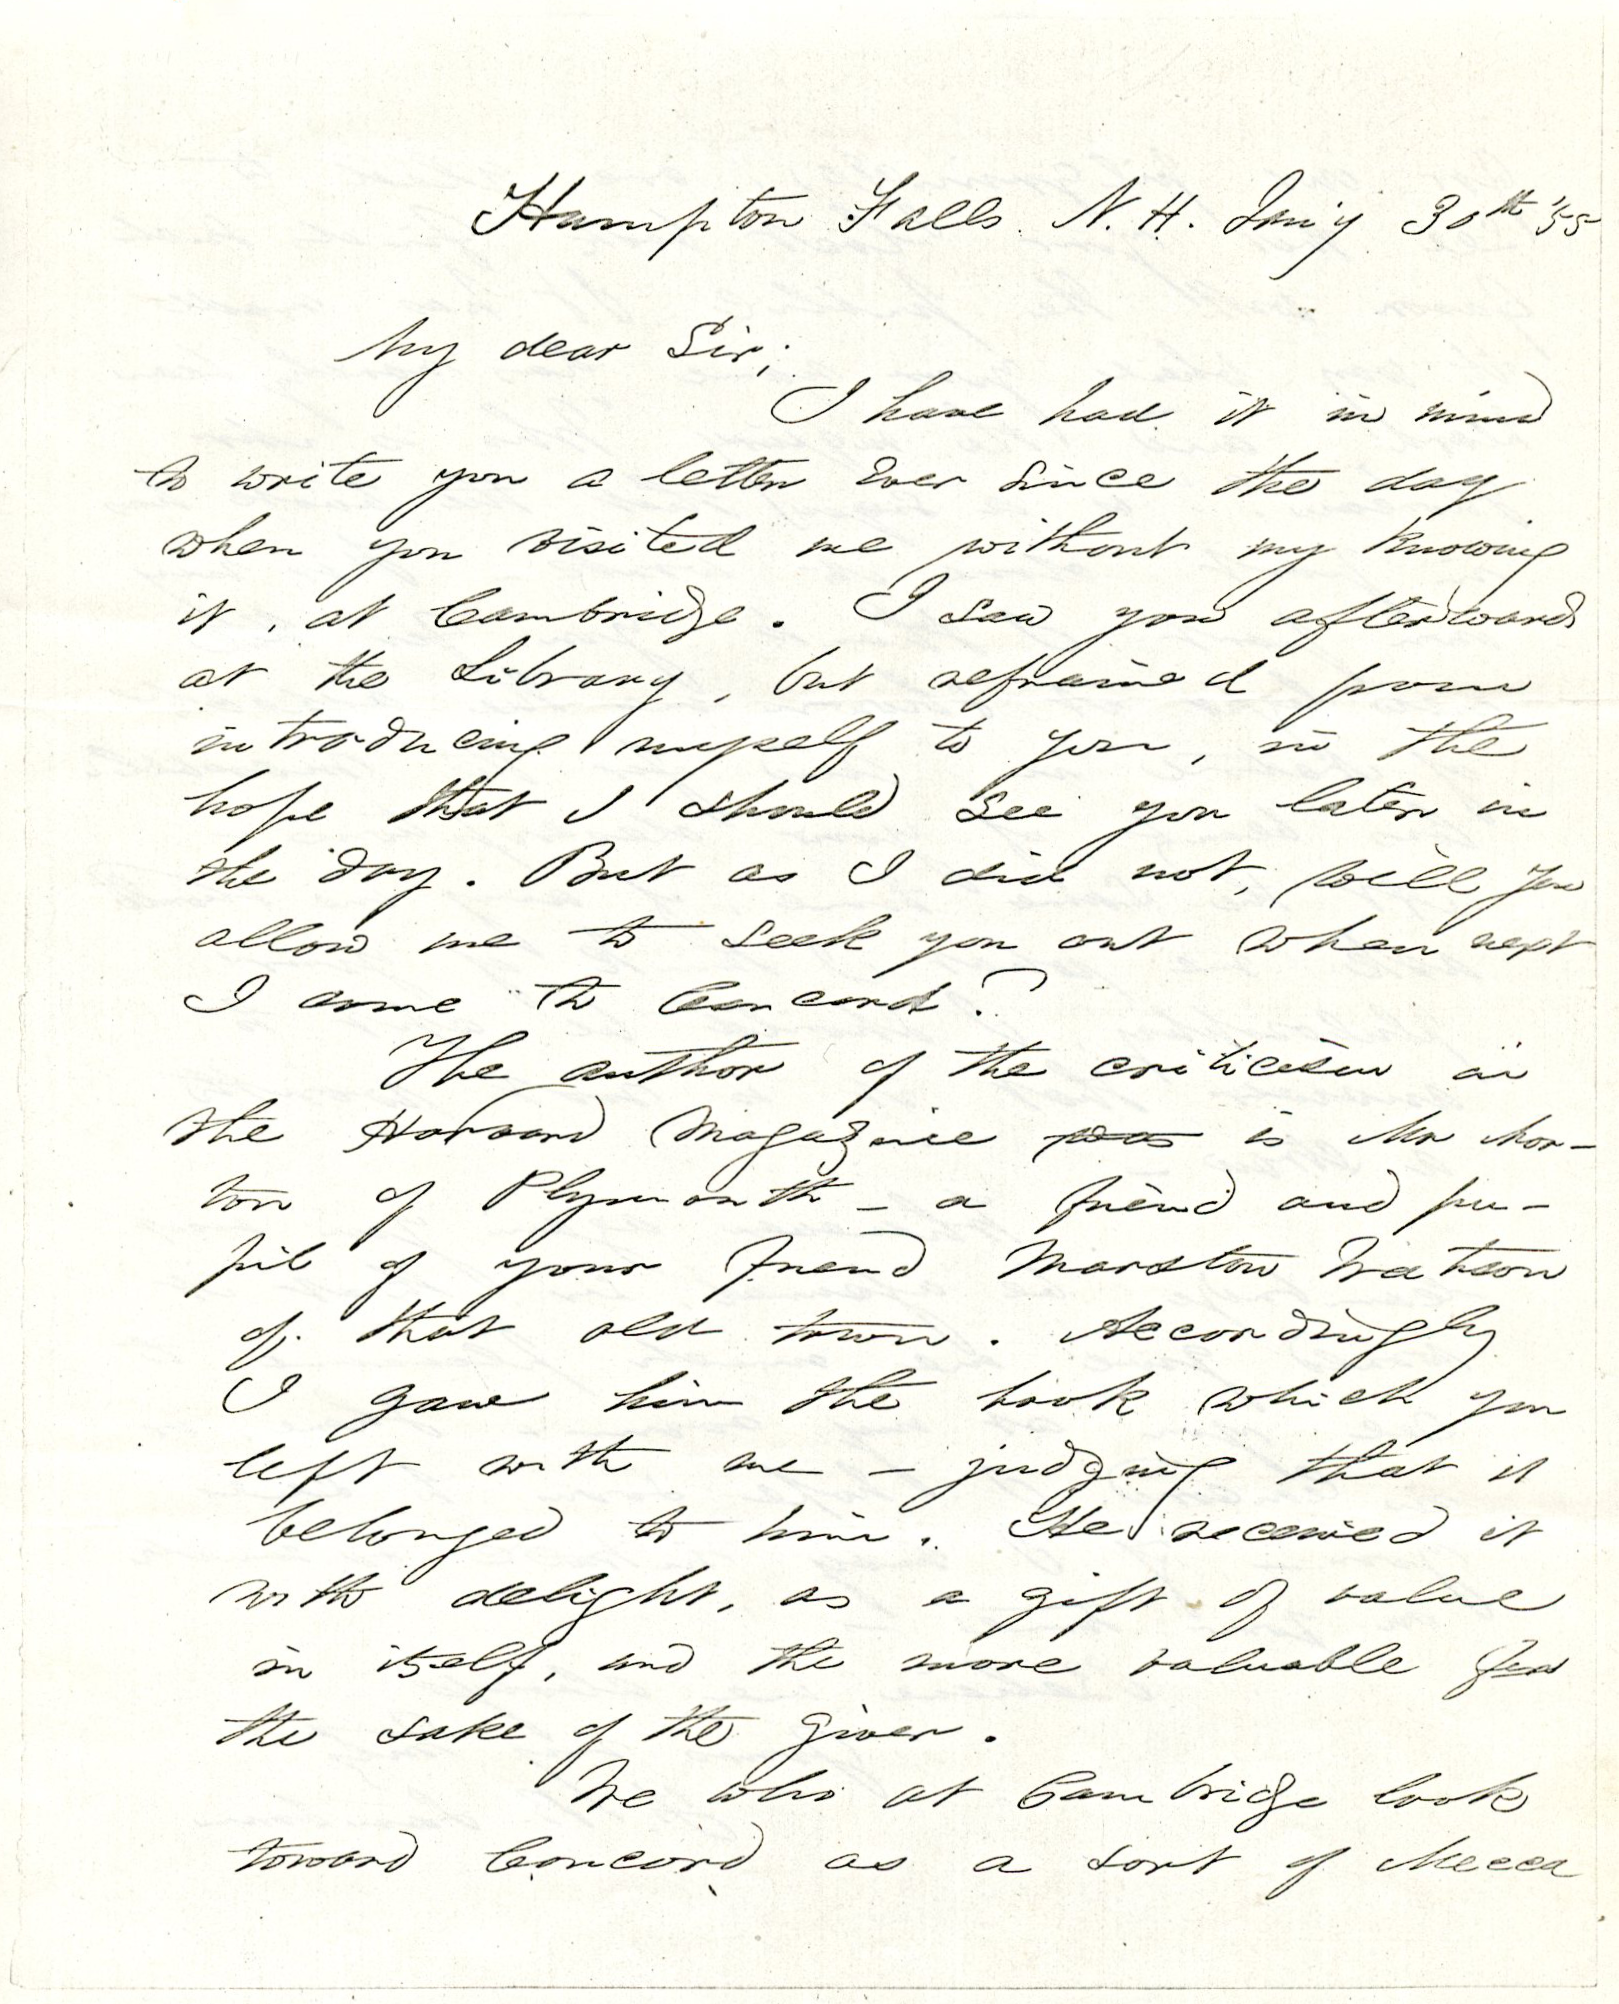 Hampton Falls N. H. Jan'y 30th '55
My dear Sir;
I have had it in mind
to write you a letter ever since the day
when you visited me without my knowing
it, at Cambridge. I saw you afterward
at the Library, but refrained from
introducing myself to you, in the
hope that I should see you later in
the day. But as I did not, will you
allow me to seek you out when next
I come to Concord?
The author of the criticism in
the Harvard Magazine was is Mr Mor-
ton of Plymouth - a friend and pu-
pil of your friend Marston Watson
of that old town. Accordingly
I gave him the book which you
left with me - judging that it
belonged to him. He received it
with delight, as a gift of value
in itself, and the more valuable for
the sake of the giver.
We who at Cambridge look
toward Concord as a sort of Mecca